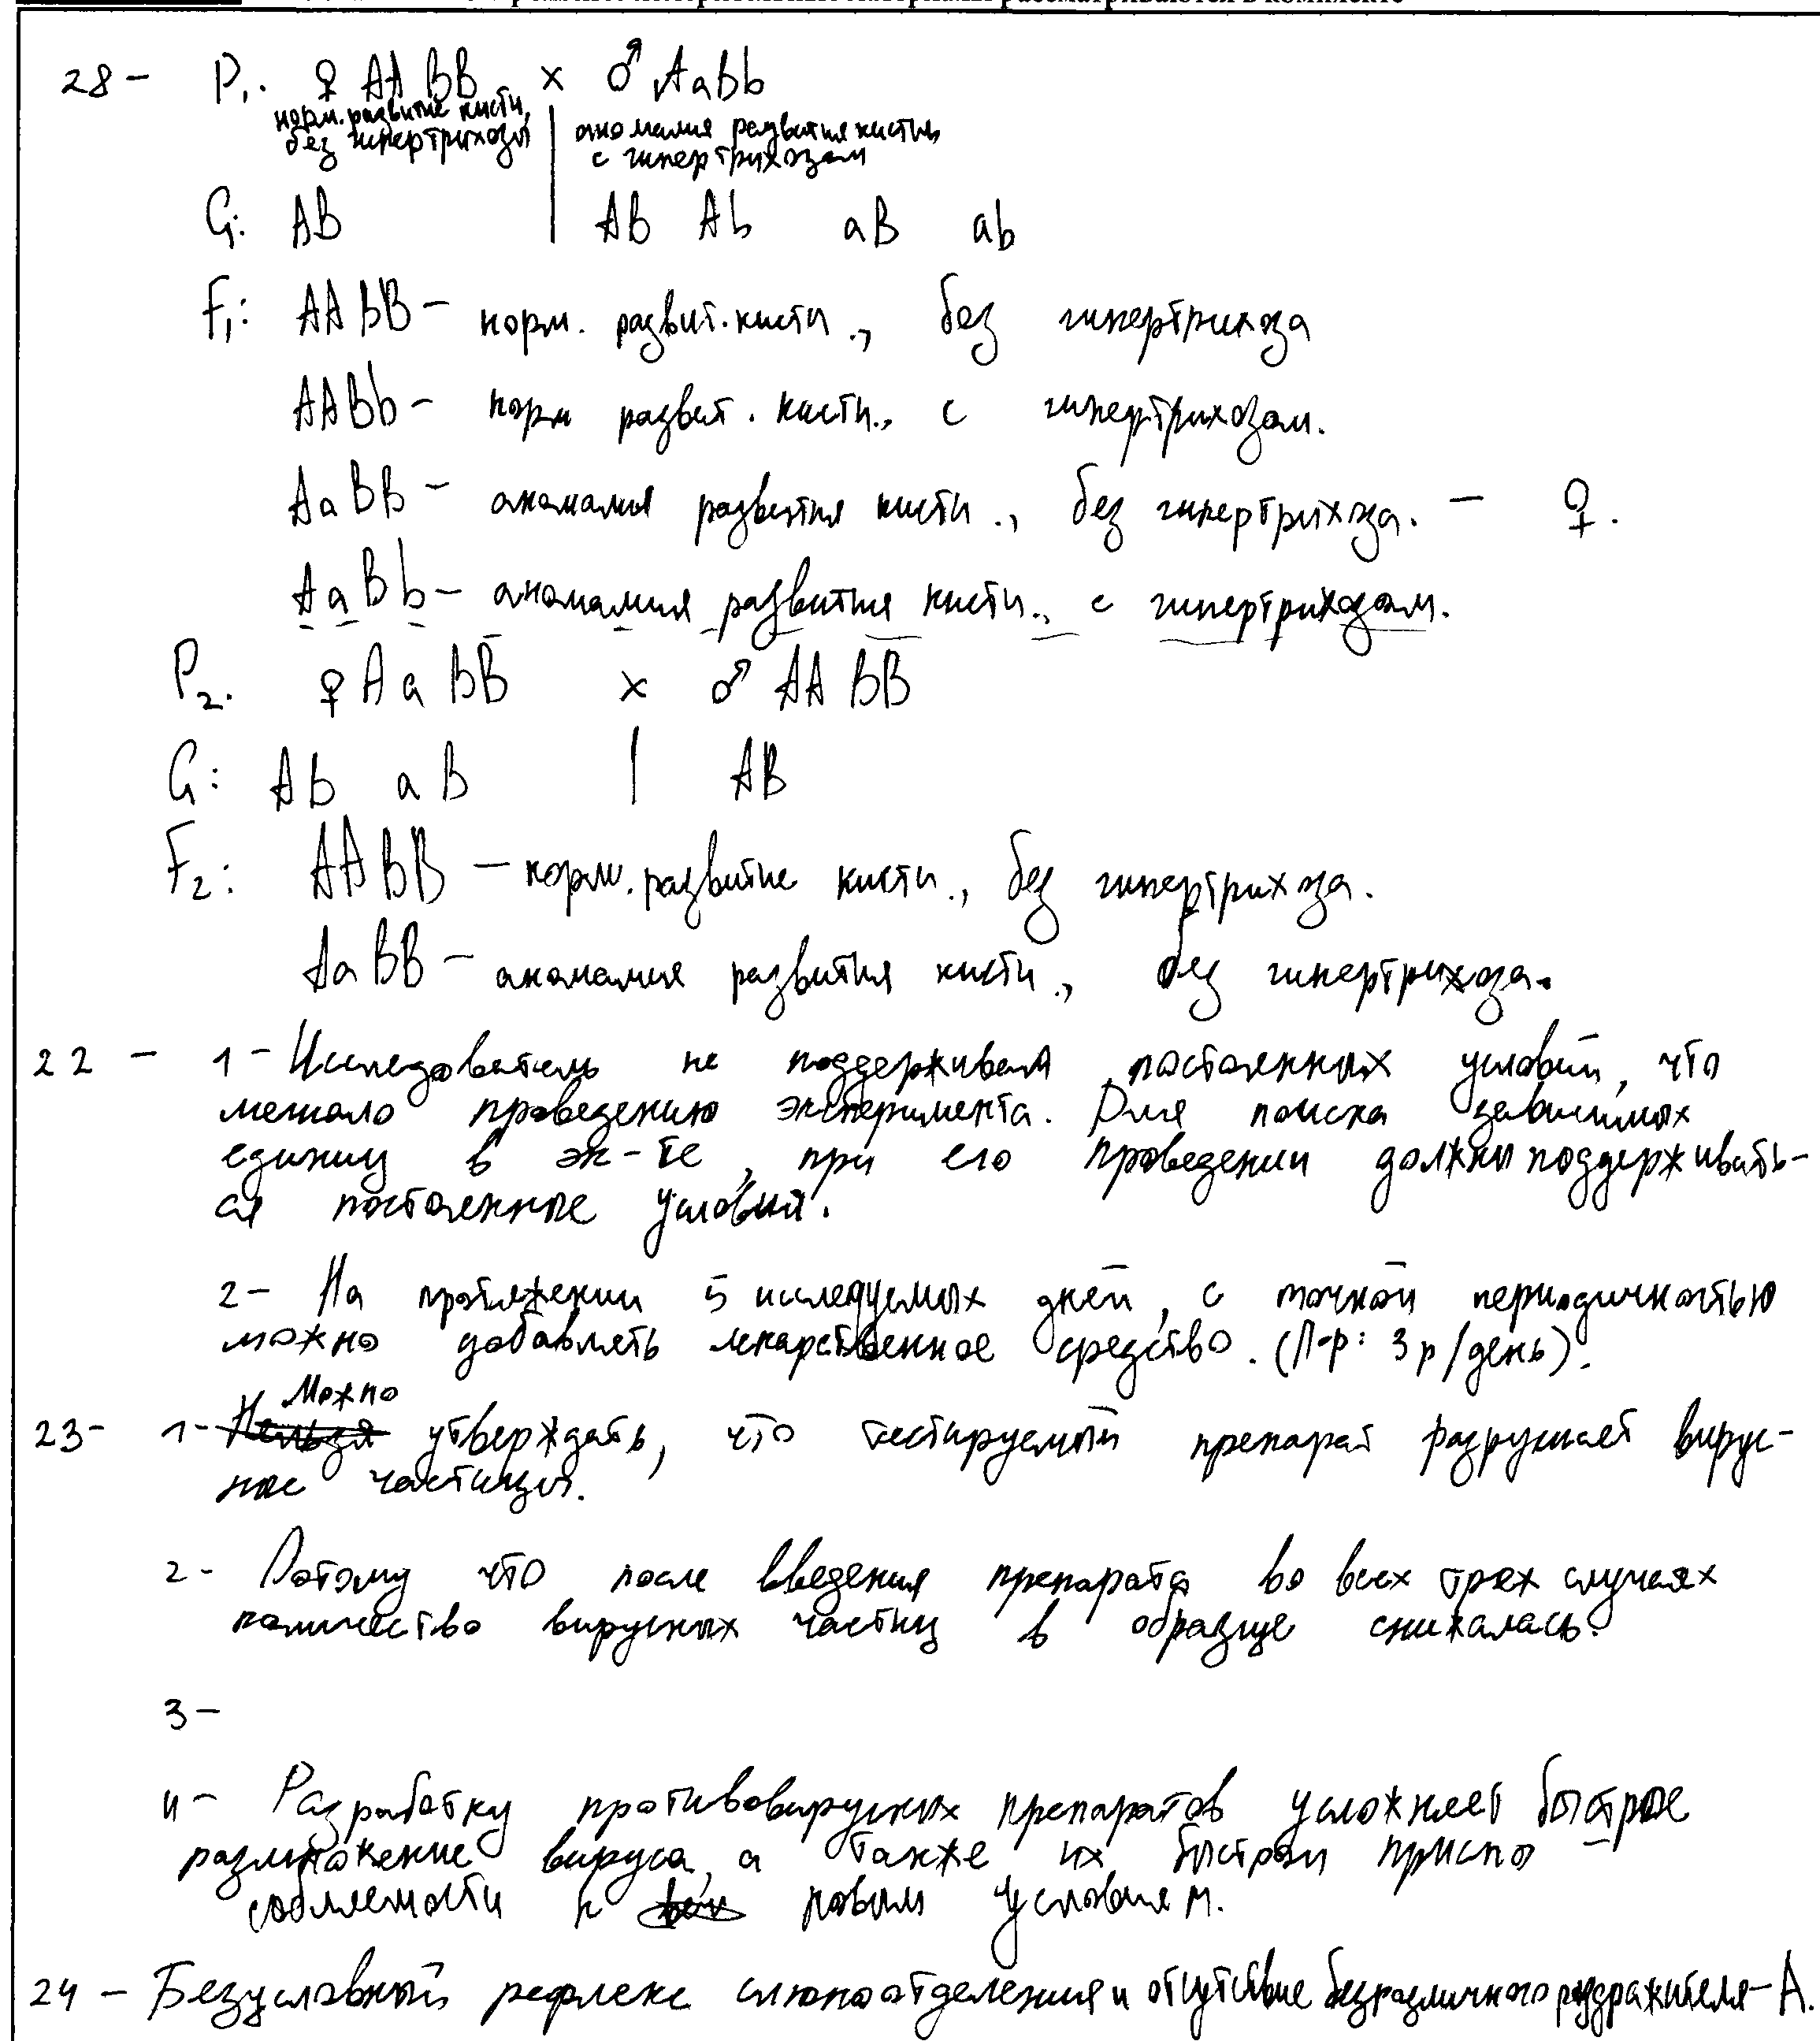 рассматриваются в комплекте
28 - P₁. ♀ AA BB × ♂ AaBb
норм. развитие кисти, | аномалия развития кисти,
без гипертрихоза | с гипертрихозом
G: AB | AB Ab aB ab
F₁: AABB - норм. развит. кисти., без гипертрихоза
AABb - норм развит. кисти., с гипертрихозом.
AaBB - аномалия развития кисти., без гипертрихоза. - ♀.
AaBb - аномалия развития кисти., с гипертрихозом.
P₂. ♀ Aa BB × ♂ AA BB
G: Ab aB | AB
F₂: AABB - норм. развитие кисти., без гипертрихоза.
AaBB - аномалия развития кисти., без гипертрихоза.
22 - 1 - Исследователь не поддерживал постоянных условий, что
мешало проведению эксперимента. Для поиска зависимых
единиц в эк-те, при его проведении должны поддерживать-
ся постоянные условия.
2 - На протяжении 5 исследуемых дней, с точной периодичностью
можно добавлять лекарственное средство. (П-р: 3 р/день).
Можно
23 - 1 - Нельзя утверждать, что тестируемый препарат разрушает вирус-
ные частицы.
2 - Потому что после введения препарата во всех трех случаях
количество вирусных частиц в образце снижалась.
3 -
4 - Разработку противовирусных препаратов усложняет быстрое
размножение вируса, а также их быстрой приспо-
собляемости к новым условиям.
24 - Безусловный рефлекс слюноотделения и отсутствие безразличного раздражителя - А.